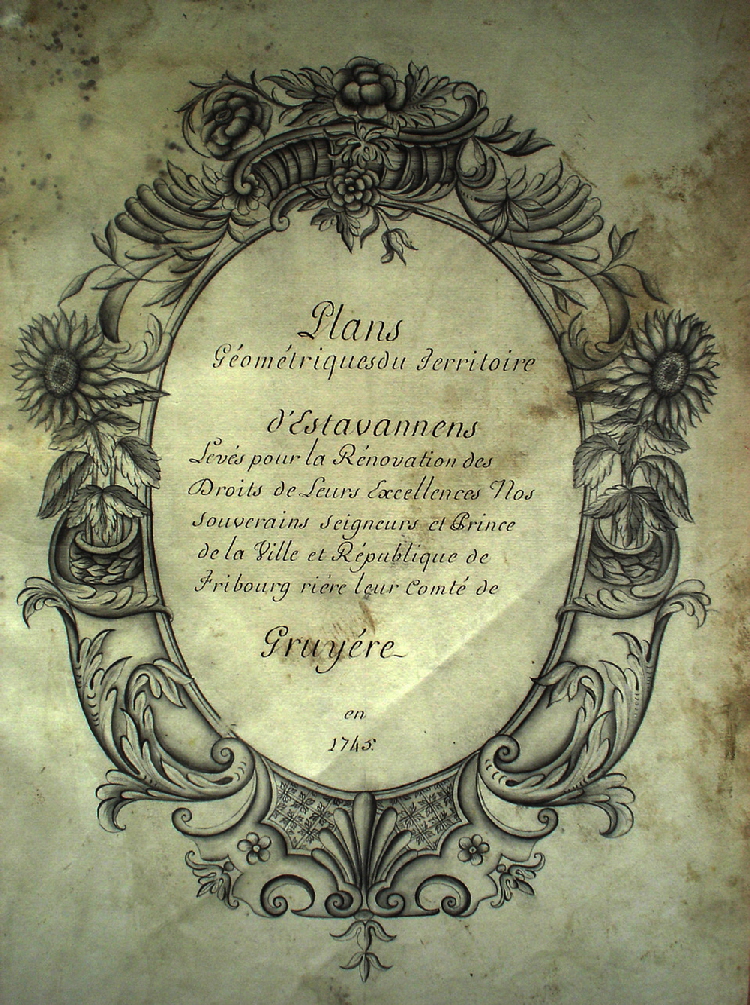 Plans
Géométriques du Territoire
d'Estavannens
Levés pour la Rénovation des
Droits de Leurs Excellences Nos
souverains seigneurs et Prince
de la Ville et République de
Fribourg riére leur Comté de
Gruyére
en
1745.